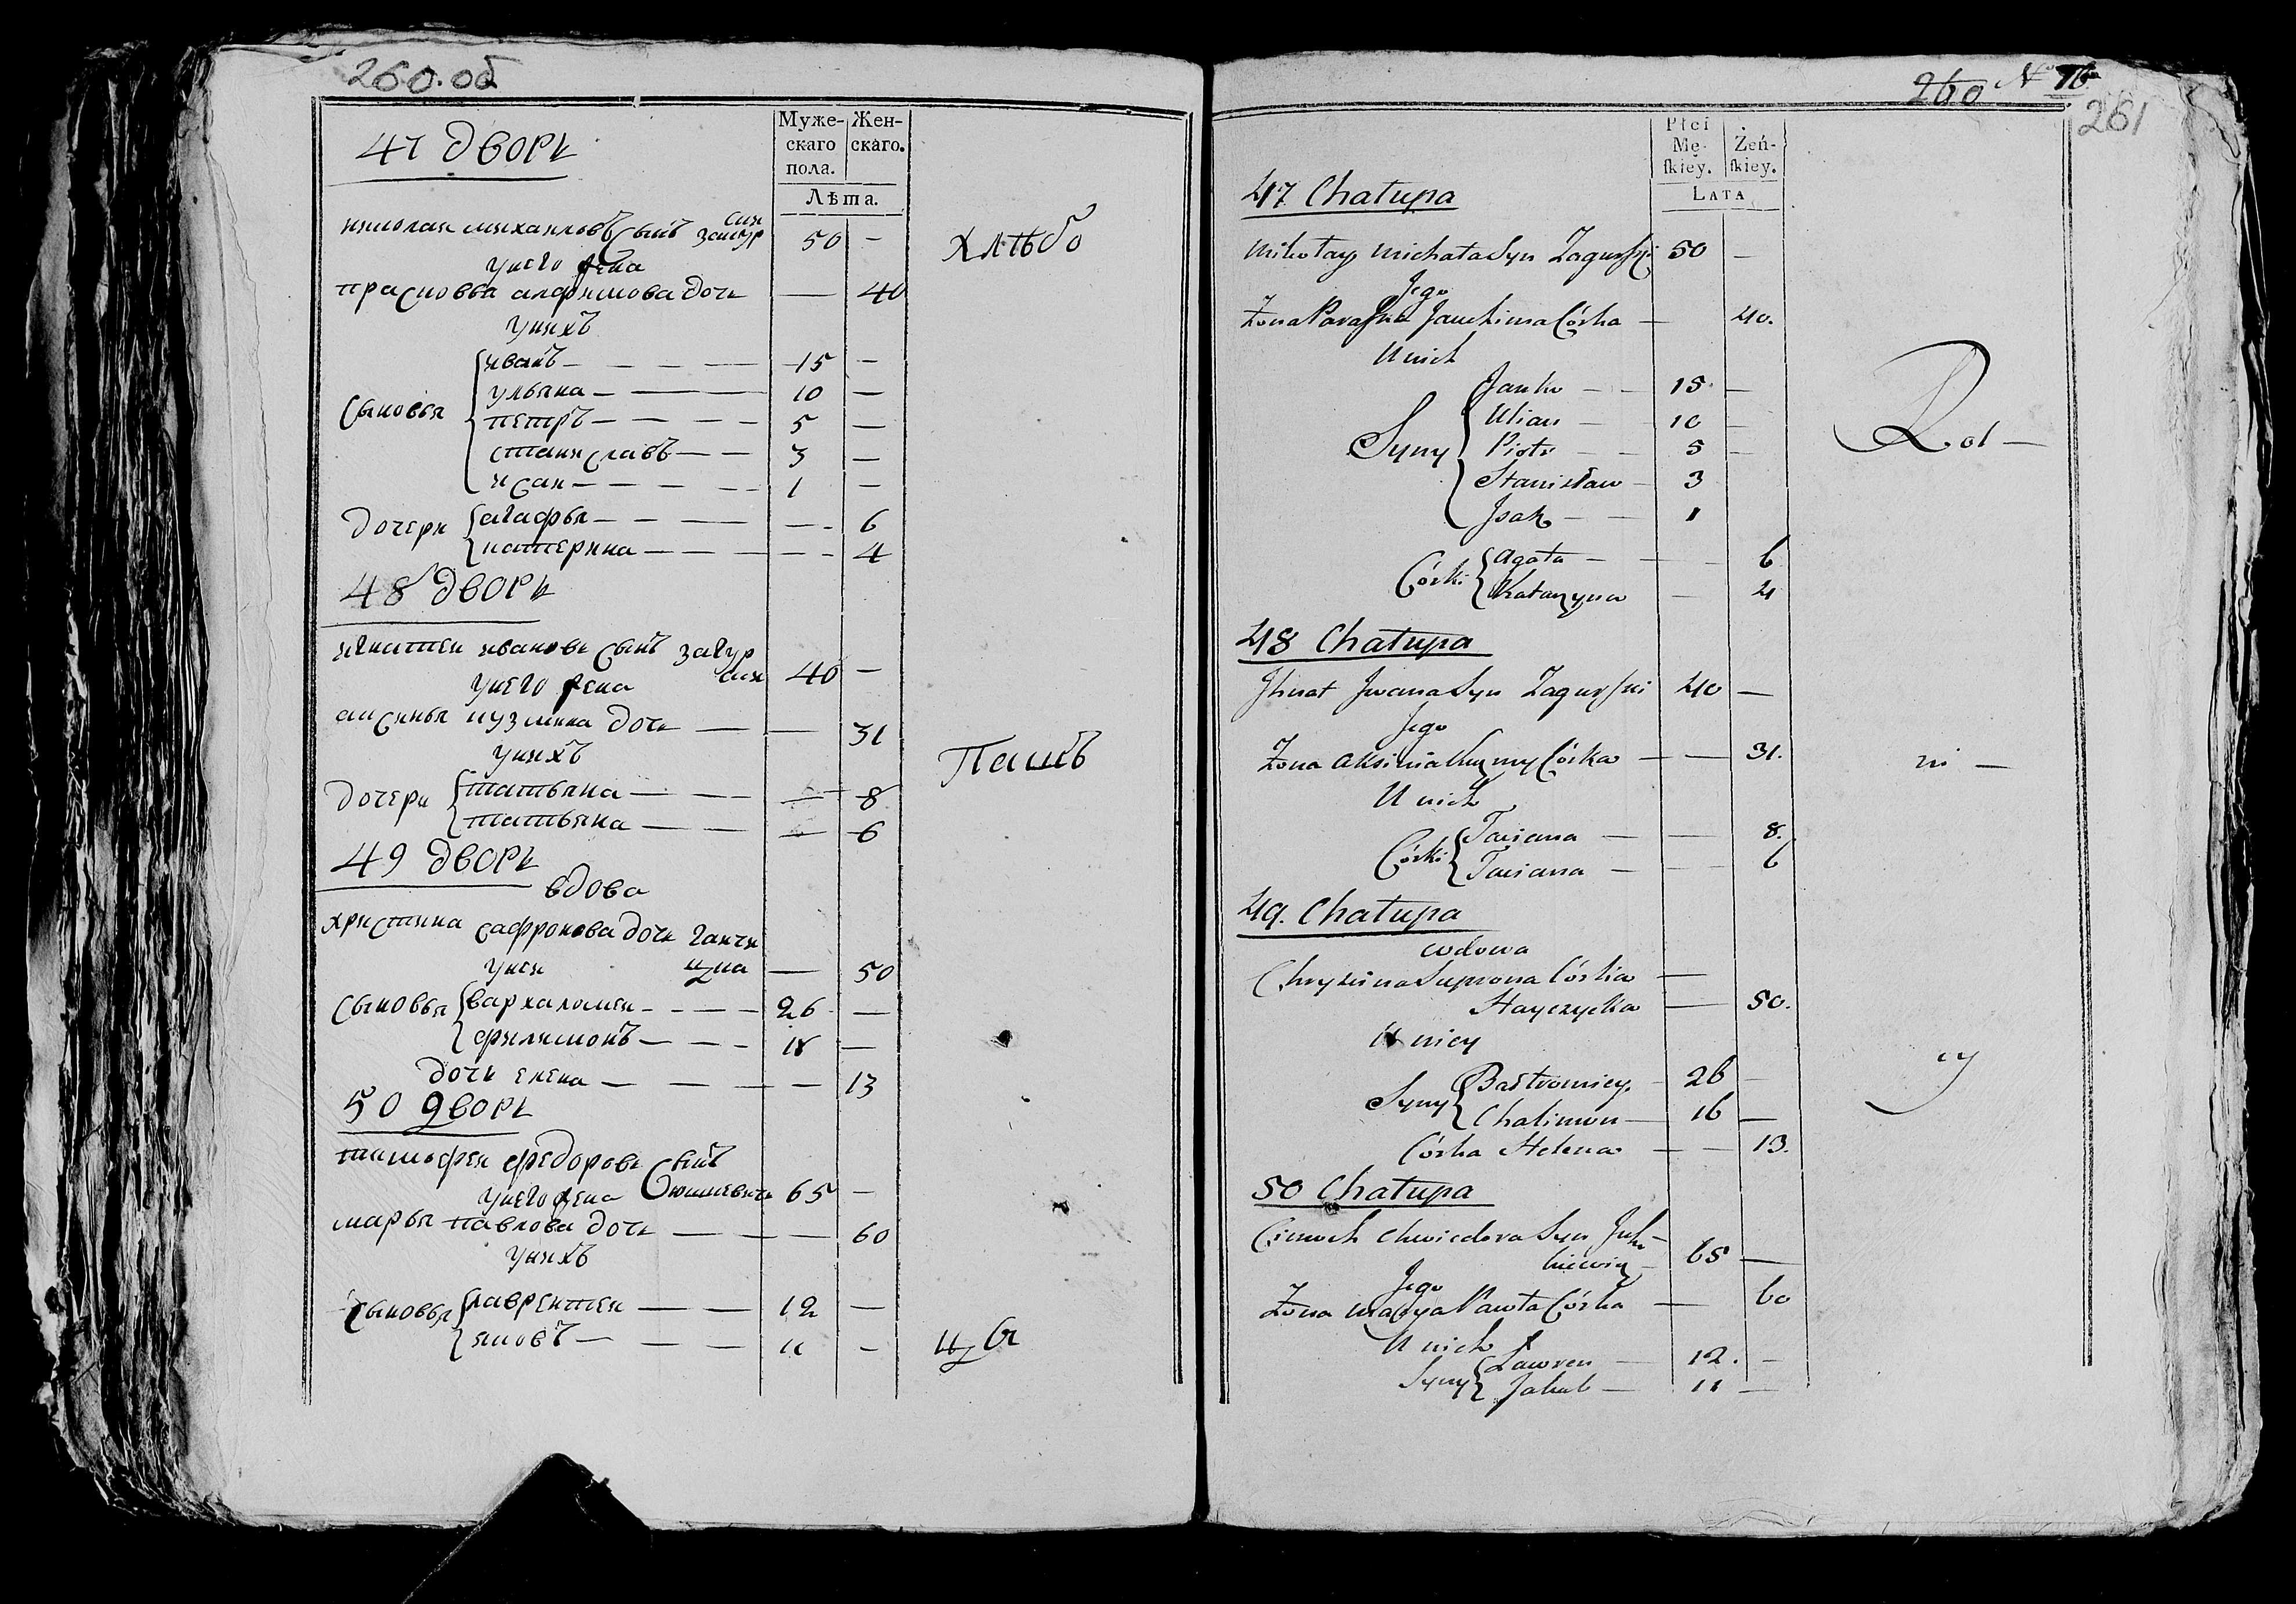 260.об
47 дворъ
Муже-
скаго
пола.
Жен-
скаго.
Лѣта.
николаи михаиловъ сынъ загур
ски 50 —
унего жена
прасковья дочь — 40
унихъ
сыновья
иванъ — 15 —
ульяна — 10 —
петръ — 5 —
станиславъ — 3 —
исаи — 1 —
дочери
агафья — 6
катерина — 4
48 дворъ
игнатеи ивановъ сынъ загур
ски 40 —
унего жена
аксинья кузмина дочь — 31
унихъ
дочери
татьяна — 8
татьяна — 6
49 дворъ
вдова
христина сафронова дочь
унеи — 50
сыновья
вархаломеи — 26 —
филимонъ —
дочь елена — 13
50 дворъ
тимофеи федоровъ сынъ
унего жена 65 —
марья павлова дочь — 60
унихъ
сыновья
лаврентеи — 12 —
яковъ — 11 —
хлѣбо
пашъ
цы
260 № 76
261
Płci
Mę-
skiey.
Żeń-
skiey.
LATA
47 Chałupa
Mikołay Michała Syn Zagurski 50 —
Jego
Żona Paraska Jauchima Córka — 40.
U nich
Syny
Janko — 15 —
Ulian — 10 —
Piotr — 5 —
Stanisław — 3
Jsak — 1
Córki
Agata — 6
Katarzyna — 4
48 Chałupa
Jhnat Jwana Syn Zagurski 40 —
Jego
Żona Aksinia Kuzmy Córka — 31.
U nich
Córki
Taciana — 8.
Taciana — 6
49. Chałupa
wdowa
Chrystina Suprona Córka —
— 50.
U niey
Syny
Bałtromiey — 26 —
Chalimon — 16 —
Córka Helena — 13.
50 Chałupa
Cimoch Chwiedora Syn Juch-
niewicz 65 —
Jego
Żona Marya Pawła Córka — 60
U nich
Syny
Lawren — 12. —
Jakub — 11 —
Rol —
ni —
cy